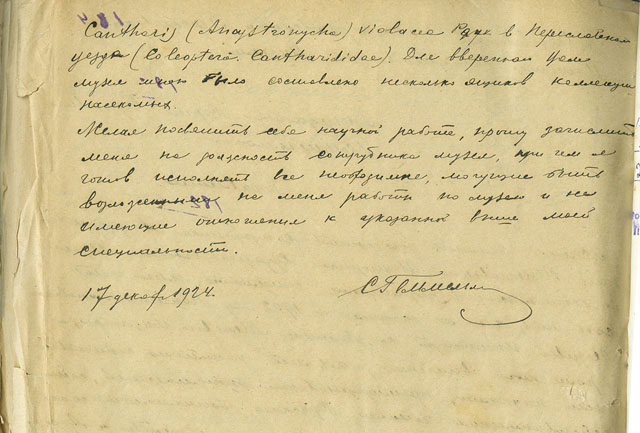 Cantharis (Ancystronycha) violacea Payk в Переславском
уезде (Coleoptera Cantharididae). Для вверенного Вам
музея мною было составлено несколько ящиков коллекции
насекомых.
Желая посвятить себя научной работе, прошу зачислить
меня на должность сотрудника музея, при чем я
готов исполнять все необходимые, могущие быть
возложенными на меня работы по музею и не
имеющие отношения к указанной выше моей
специальности.
17 декаб. 1924.